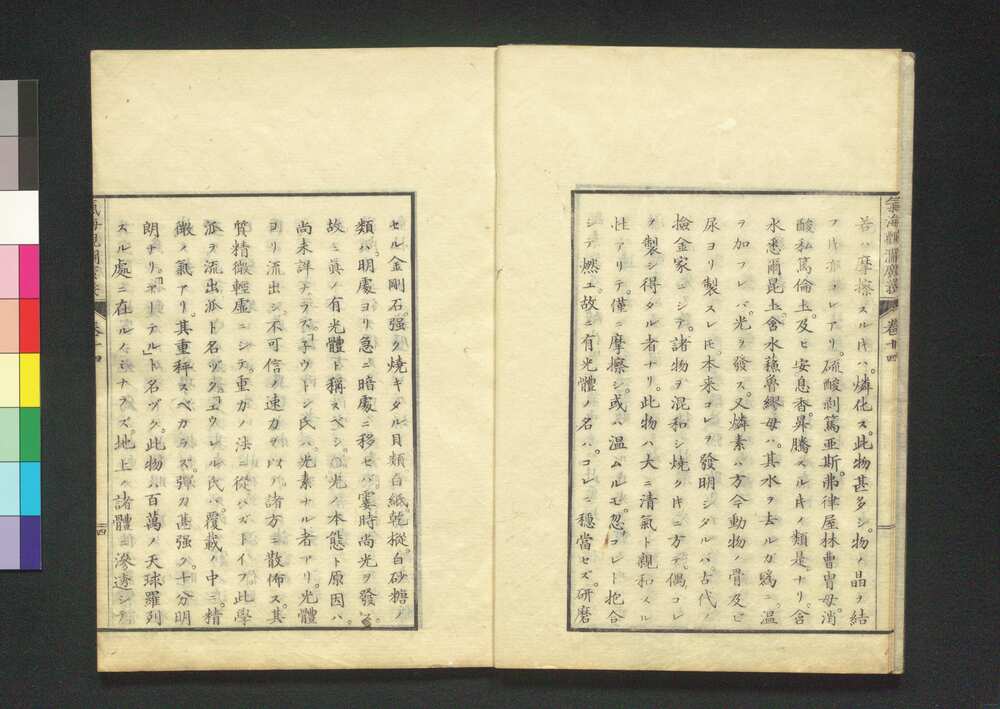 氣海觀瀾廣義 卷十四
若ハ摩擦スル𪜈ハ、燐化ス。此物甚多シ。物ノ晶ヲ結
フ𪜈亦コレアリ。硫酸剥篤亞斯。弗律屋林曹冑母。消
酸私篤倫土。及ヒ安息香。昇騰スル𪜈ノ類是ナリ。含
水悉爾昆土。含水蘓魯繆母ハ。其水ヲ去ルガ爲ニ。温
ヲ加フレバ。光ヲ發ス。又燐素ハ方今動物ノ骨及ヒ
尿ヨリ製スレ𪜈。本来コレヲ發明シタルハ。古代ノ
撿金家ニシテ。諸物ヲ混和シ燒ク𪜈ニ方テ。偶コレ
ヲ製シ得タル者ナリ。此物ハ大ニ清氣ト親和スル
性アリテ。僅ニ摩擦シ。或ハ温ムルモ。忽コレト抱合
シテ燃ユ。故ニ有光體ノ名ハ。コレニ穩當セズ。研磨
セル金剛石。强ク燒キタル貝類。白紙。乾樅。白砂糖ノ
類ハ。明處ヨリ急ニ暗處ニ移セバ。霎時尚光ヲ發ス。
故ニ眞ノ有光體ト稱スベシ。光ノ本態ト原因ハ
尚未詳ナラズ。「ネウトン」氏ハ。光素ナル者アリ。光體
ヨリ流出シ。不可信ノ速力ヲ以テ諸方ニ散佈ス。其
質精微輕虚ニシテ。重力ノ法ニ從ハガトイフ。此學
派ヲ流出派ト名ヅク。「エウレル」氏ハ。覆載ノ中ニ。精
微ノ氣アリ。其重秤スベカラズ。彈力甚强ク。十分明
朗ナリ。「エーテル」ト名ヅク。此物ハ百萬ノ天球羅列
スル處ニ在ルノミナラズ。地上ノ諸體ニ滲透シテ
卷十四
三四